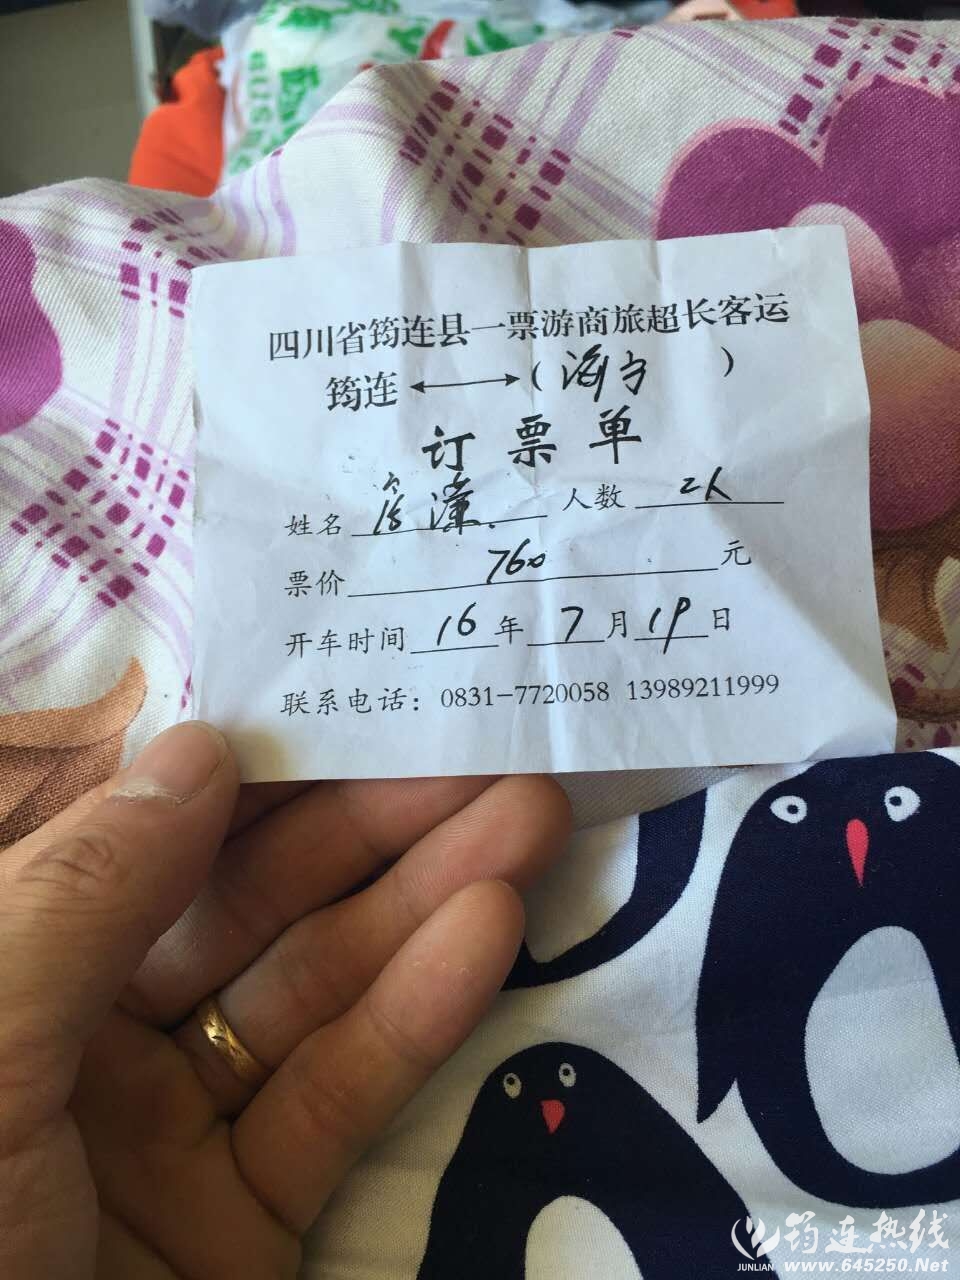 四川省筠连县一票游商旅超长客运
筠连 ←→ (海宁)
订票单
姓名 人数 二人
票价 760 元
开车时间 16 年 7 月 19 日
联系电话: 0831-7720058 13989211999
筠连热线
JUNLIAN www.645250.Net